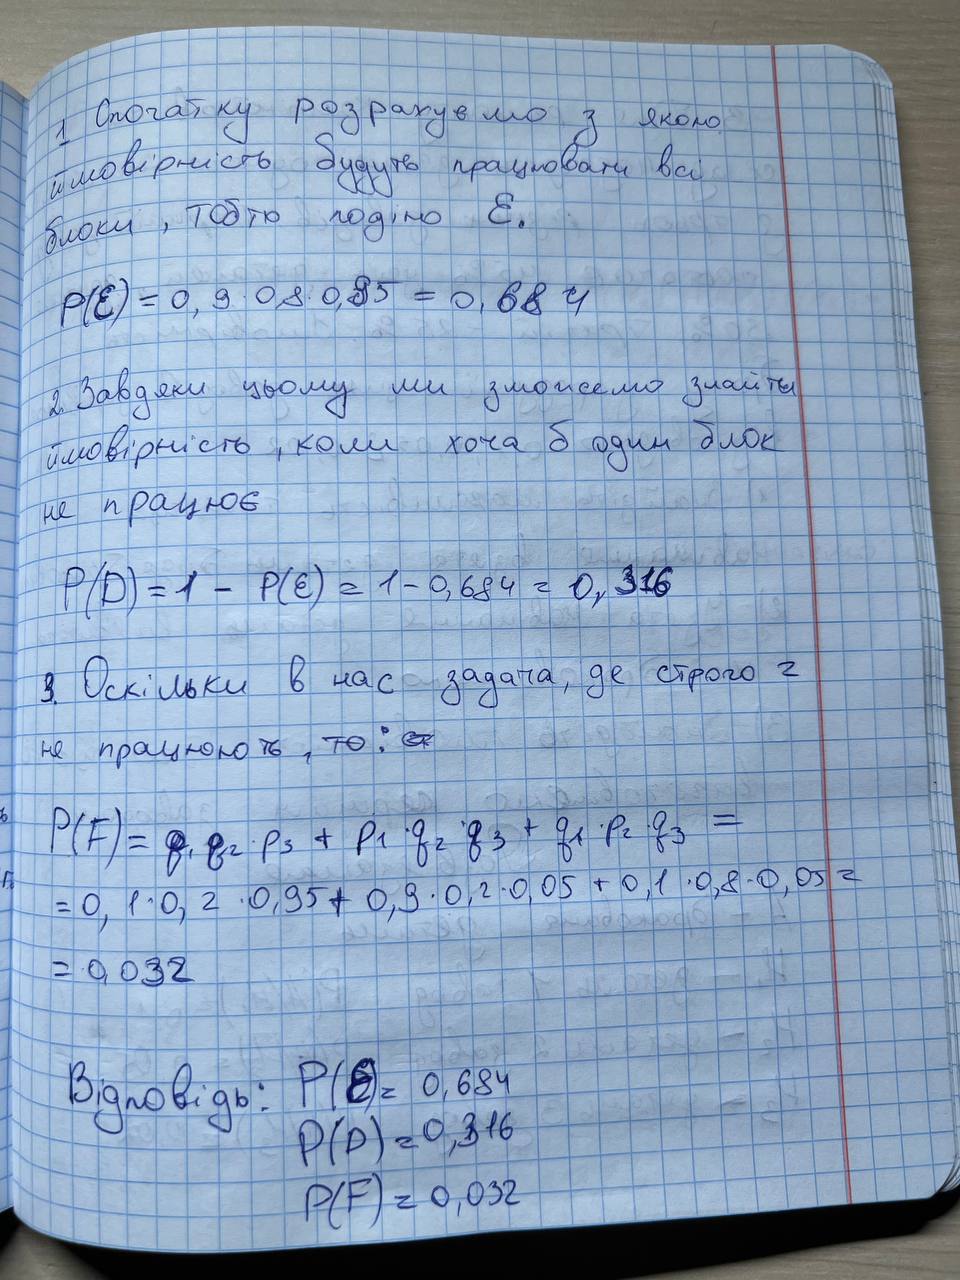 1 Спочатку розрахуємо з якою
ймовірність будуть працювати всі
блоки, тобто подію Е.
P(E) = 0,9·0,8·0,95 = 0,684
2. Завдяки цьому ми зможемо знайти
ймовірність, коли хоча б один блок
не працює
P(D) = 1 - P(E) = 1 - 0,684 = 0,316
3. Оскільки в нас задача, де строго 2
не працюють, то:
P(F) = q1·q2·p3 + p1·q2·q3 + q1·p2·q3 =
= 0,1·0,2·0,95 + 0,9·0,2·0,05 + 0,1·0,8·0,05 =
= 0,032
Відповідь: P(E) = 0,684
P(D) = 0,316
P(F) = 0,032